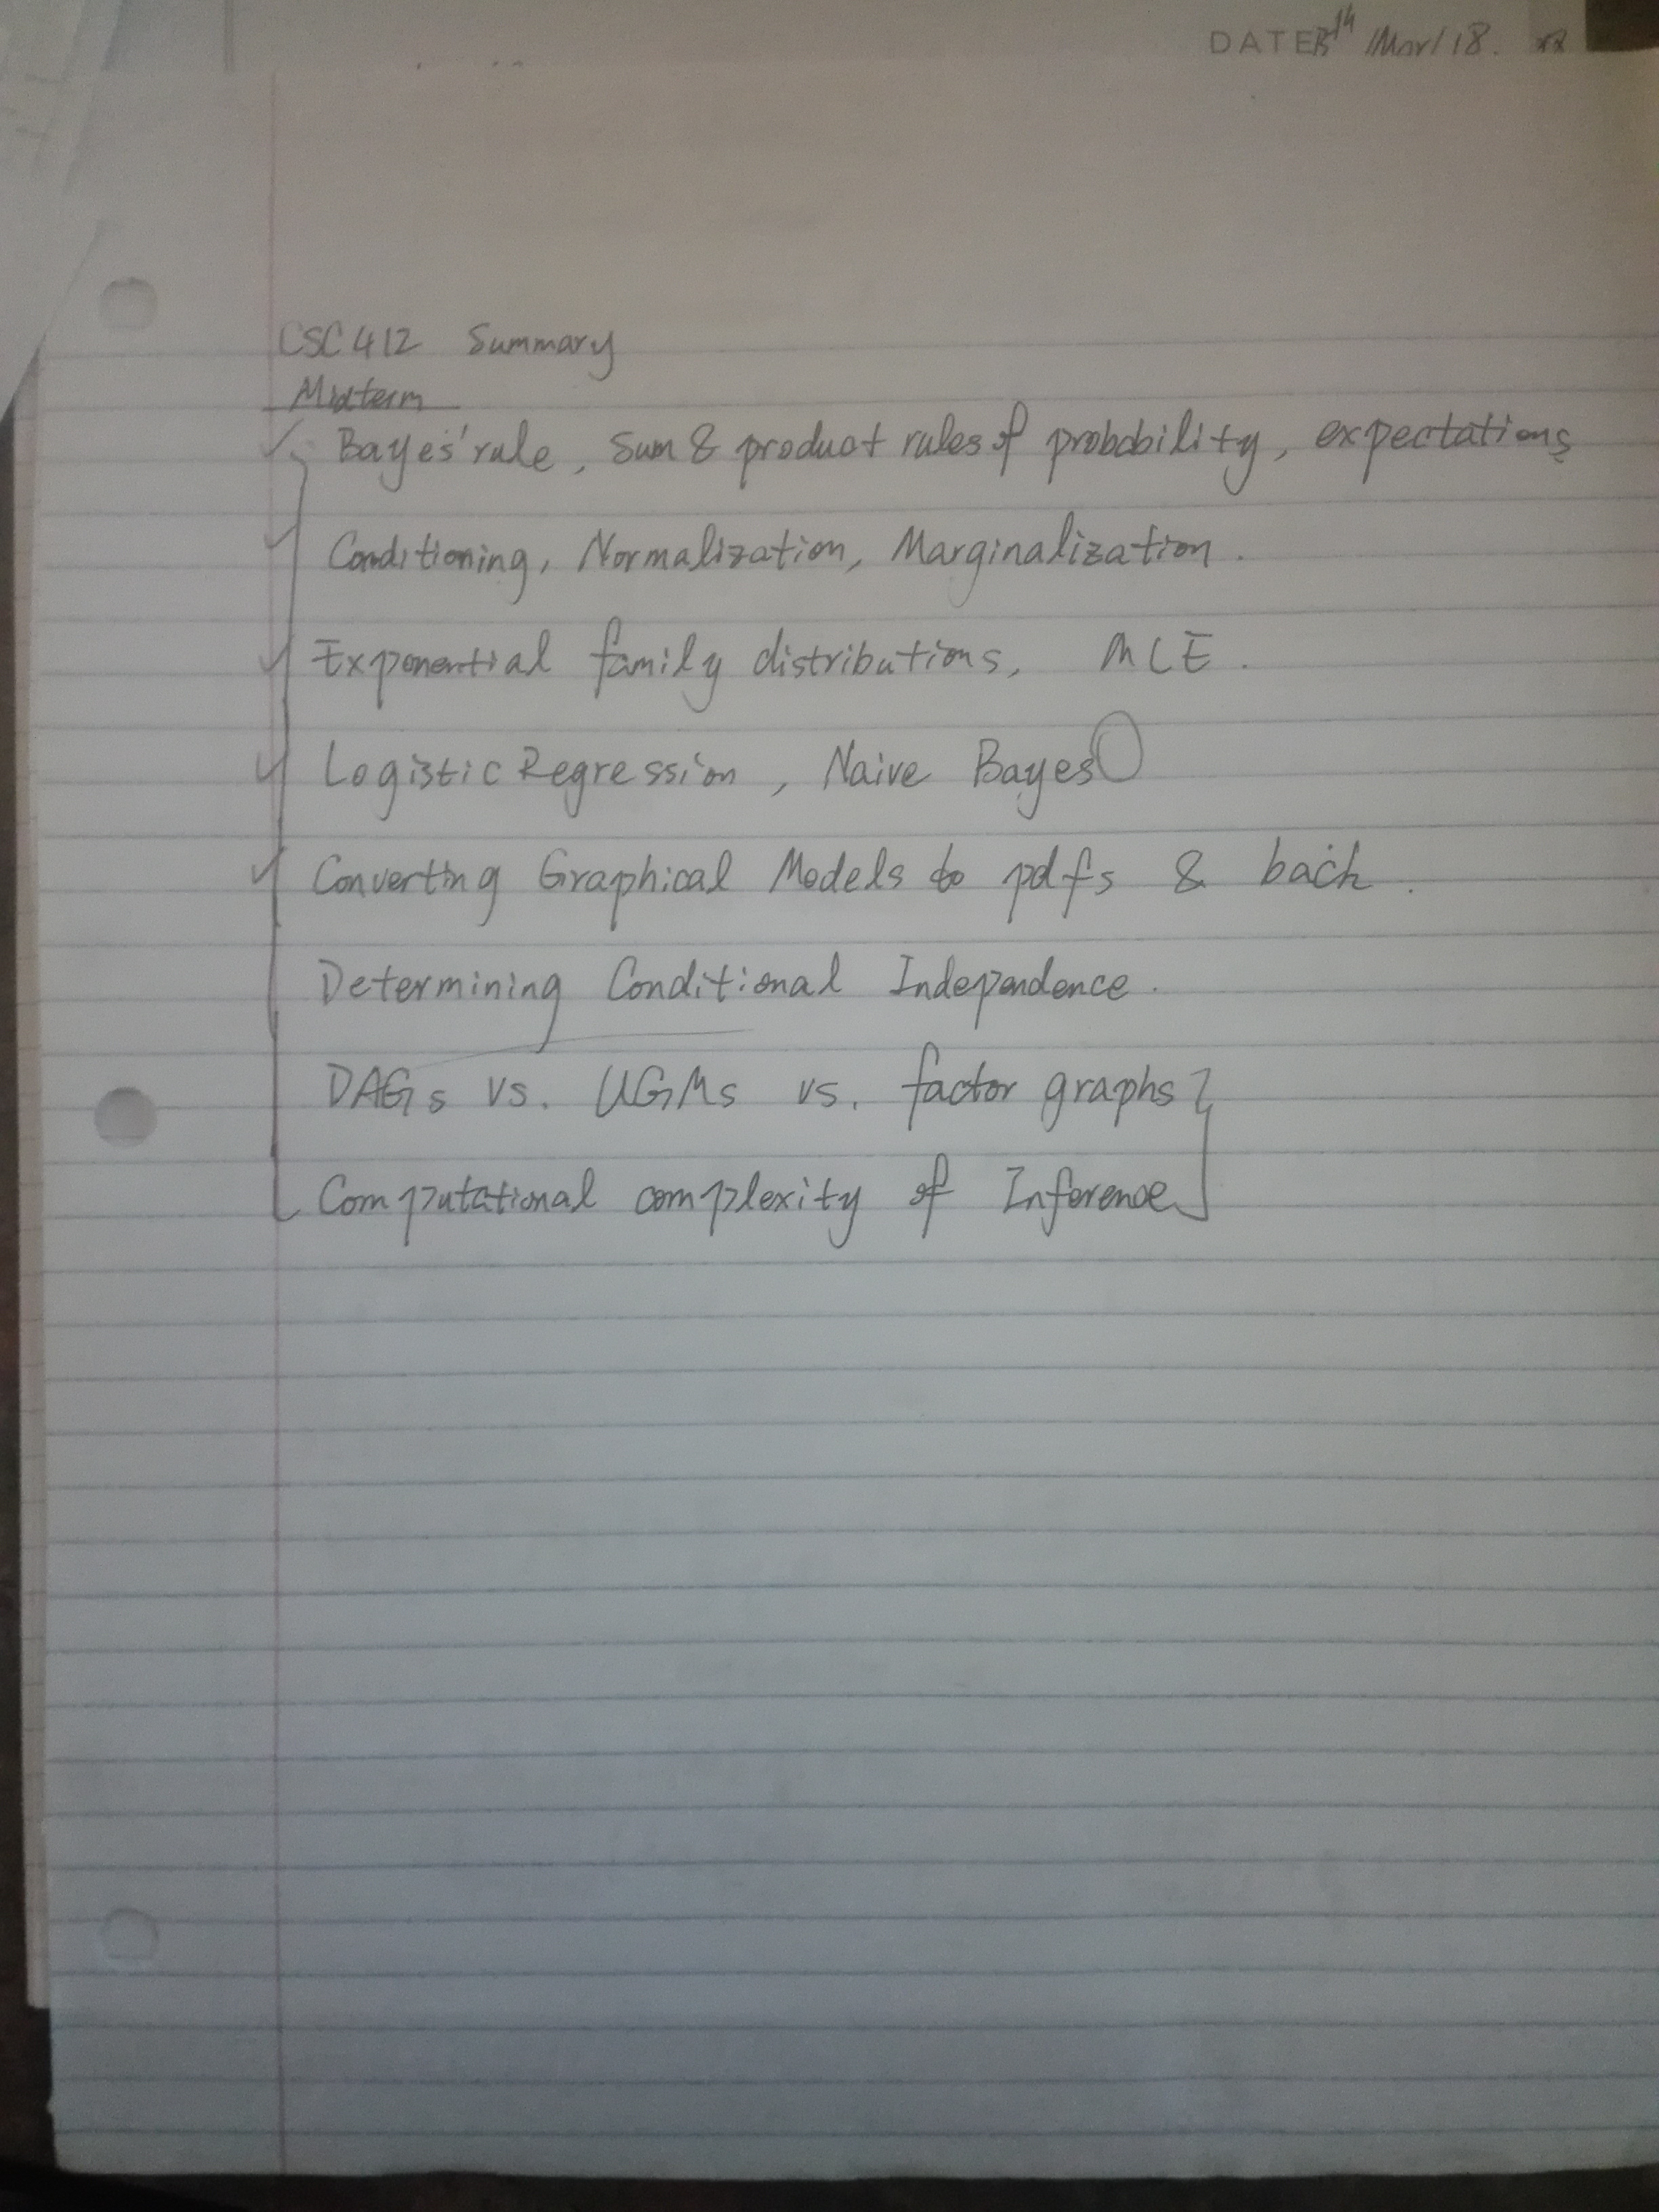 DATE /Mar/18.
CSC412 Summary
Midterm
✓ Bayes' rule, Sum & product rules of probability, expectations
✓ Conditioning, Normalization, Marginalization.
✓ Exponential family distributions, MLE.
✓ Logistic Regression, Naive Bayes
✓ Converting Graphical Models to pdfs & back.
Determining Conditional Independence.
DAGs vs. UGMs vs. factor graphs
Computational complexity of Inference